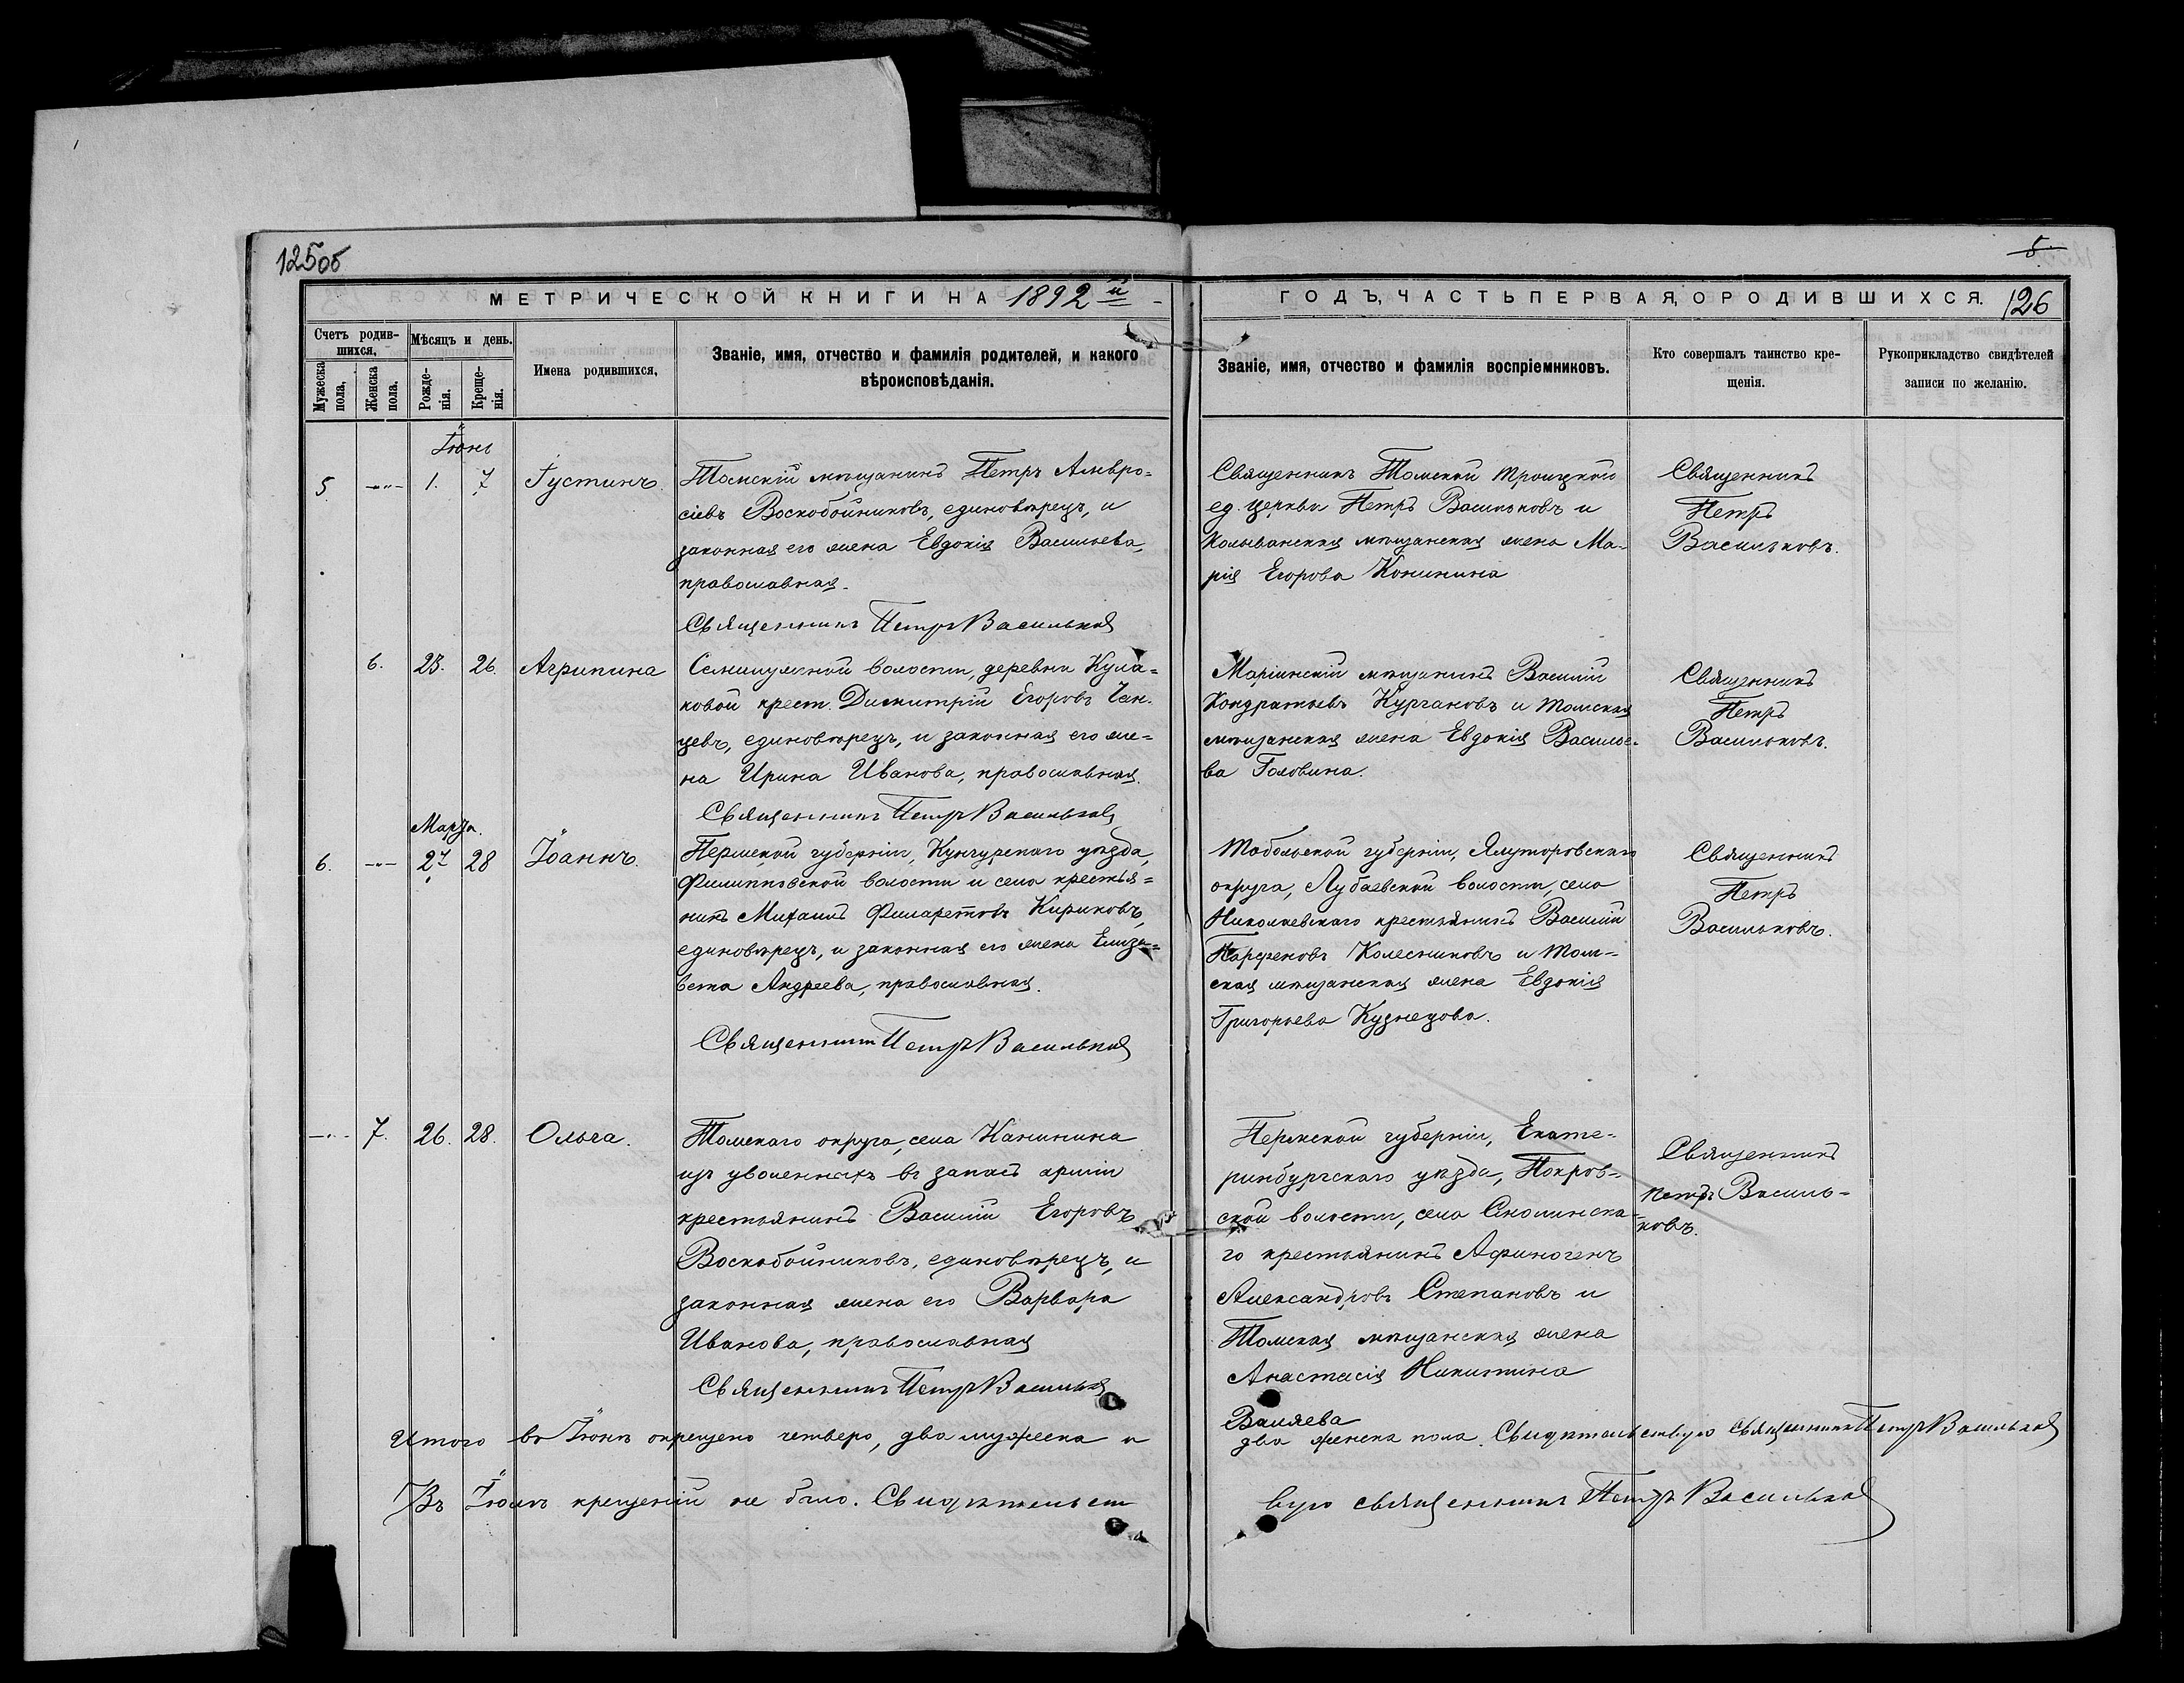 125об
5
МЕТРИЧЕСКОЙ КНИГИ НА 1892й
ГОДЪ, ЧАСТЬ ПЕРВАЯ, О РОДИВШИХСЯ. 126
Счетъ родив-
шихся,
Мужеска пола,
Женска пола.
Мѣсяцъ и день.
Рожде-
нія.
Креще-
нія.
Имена родившихся,
Званіе, имя, отчество и фамилія родителей, и какого
вѣроисповѣданія.
Званіе, имя, отчество и фамилія воспріемниковъ.
Кто совершалъ таинство кре-
щенія.
Рукоприкладство свидѣтелей
записи по желанію.
Іюнь
5 1. 7 Іустинъ.
Томскій мѣщанинъ Петръ Амвро-
сіевъ Воскобойниковъ, единовѣрецъ, и
законная его жена Евдокія Васильева,
православная.
Священникъ Петръ Васильковъ
Священникъ Томской Троицкой
ед. церкви Петръ Васильковъ и
Колыванская мѣщанская жена Ма-
рія Егорова Конинина
Священникъ
Петръ
Васильковъ.
6. 23. 26. Агрипина
Семилужной волости, деревни Кула-
ковой крест. Димитрій Егоровъ Чан-
цевъ, единовѣрецъ, и законная его же-
на Ирина Иванова, православная.
Священникъ Петръ Васильковъ
Маріинскій мѣщанинъ Василій
Кондратьевъ Кургановъ и Томская
мѣщанская жена Евдокія Василье-
ва Головина.
Священникъ
Петръ
Васильковъ.
Марта.
6. 27 28 Іоаннъ.
Пермской губерніи, Кунгурскаго уѣзда,
Филипповской волости и села крестья-
нинъ Михаилъ Филаретовъ Кириковъ,
единовѣрецъ, и законная его жена Елиза-
вета Андреева, православная.
Священникъ Петръ Васильковъ
Тобольской губерніи, Ялуторовскаго
округа, Лубаевской волости, села
Николаевскаго крестьянинъ Василій
Парфеновъ Колесниковъ и Том-
ская мѣщанская жена Евдокія
Григорьева Кузнецова.
Священникъ
Петръ
Васильковъ.
7. 26. 28. Ольга.
Томскаго округа, села Канинина
изъ уволенныхъ въ запасъ арміи
крестьянинъ Василій Егоровъ
Воскобойниковъ, единовѣрецъ, и
законная жена его Варвара
Иванова, православная
Священникъ Петръ Васильковъ
Пермской губерніи, Екате-
ринбургскаго уѣзда, Покров-
ской волости, села Смолинска-
го крестьянинъ Афиногенъ
Александровъ Степановъ и
Томская мѣщанская жена
Анастасія Никитина
Валяева
Священникъ
Петръ Василь-
ковъ.
Итого въ Іюнѣ окрещено четверо, два мужеска и
два женска пола. Свидѣтельствую священникъ Петръ Васильковъ
Въ Іюлѣ крещеній не было. Свидѣтельст
вую священникъ Петръ Васильковъ